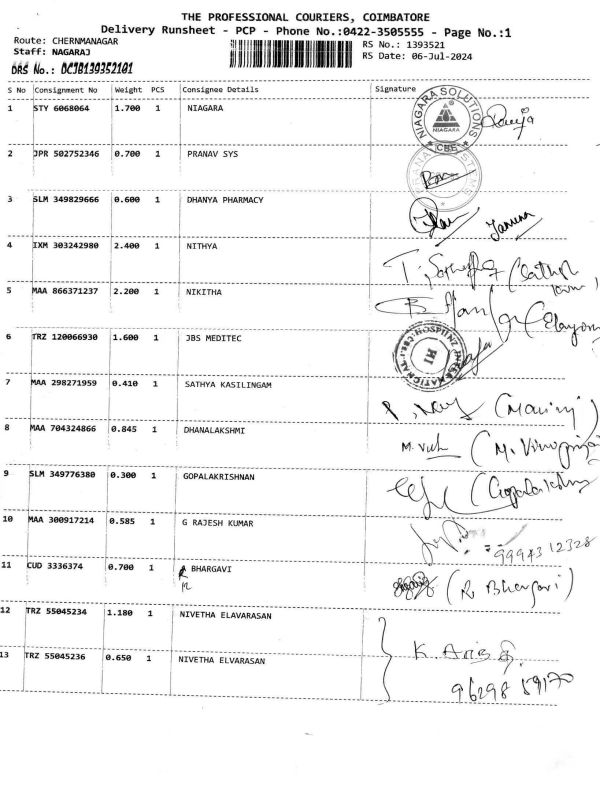 THE PROFESSIONAL COURIERS, COIMBATORE
Delivery Runsheet - PCP - Phone No.:0422-3505555 - Page No.:1
Route: CHERNMANAGAR
RS No.: 1393521
Staff: NAGARAJ
RS Date: 06-Jul-2024
DRS No.: DCJB139352101
S No Consignment No Weight PCS Consignee Details Signature
1 STY 6068064 1.700 1 NIAGARA
NIAGARA SOLUTIONS
NIAGARA
CBE
2 JPR 502752346 0.700 1 PRANAV SYS
3 SLM 349829666 0.600 1 DHANYA PHARMACY
4 IXM 303242980 2.400 1 NITHYA
5 MAA 866371237 2.200 1 NIKITHA
6 TRZ 120066930 1.600 1 JBS MEDITEC
HI
7 MAA 298271959 0.410 1 SATHYA KASILINGAM
8 MAA 704324866 0.845 1 DHANALAKSHMI
9 SLM 349776380 0.300 1 GOPALAKRISHNAN
(Gopalakrishnan
10 MAA 300917214 0.585 1 G RAJESH KUMAR
99943 12328
11 CUD 3336374 0.700 1 R BHARGAVI
R
(R. Bhargavi)
12 TRZ 55045234 1.180 1 NIVETHA ELAVARASAN
13 TRZ 55045236 0.650 1 NIVETHA ELVARASAN
96298 59170